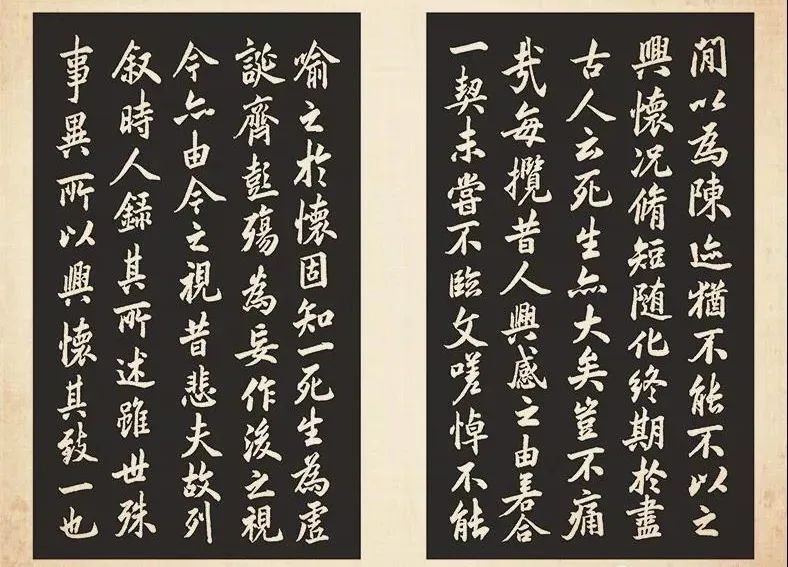 閒以為陳迹猶不能不以之
興懷况脩短随化終期於盡
古人云死生亦大矣豈不痛
㢤每攬昔人興感之由若合
一契未嘗不臨文嗟悼不能
喻之於懷固知一死生為虛
誕齊彭殤為妄作後之視
今亦由今之視昔悲夫故列
叙時人錄其所述雖世殊
事異所以興懷其致一也